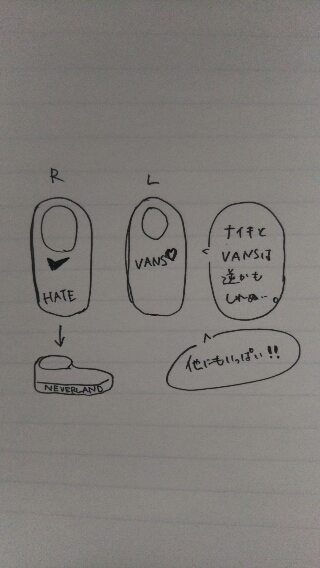 R
L
HATE
VANS♡
ナイキと
VANSは
逆かも
しれぬ…。
NEVERLAND
他にもいっぱい!!